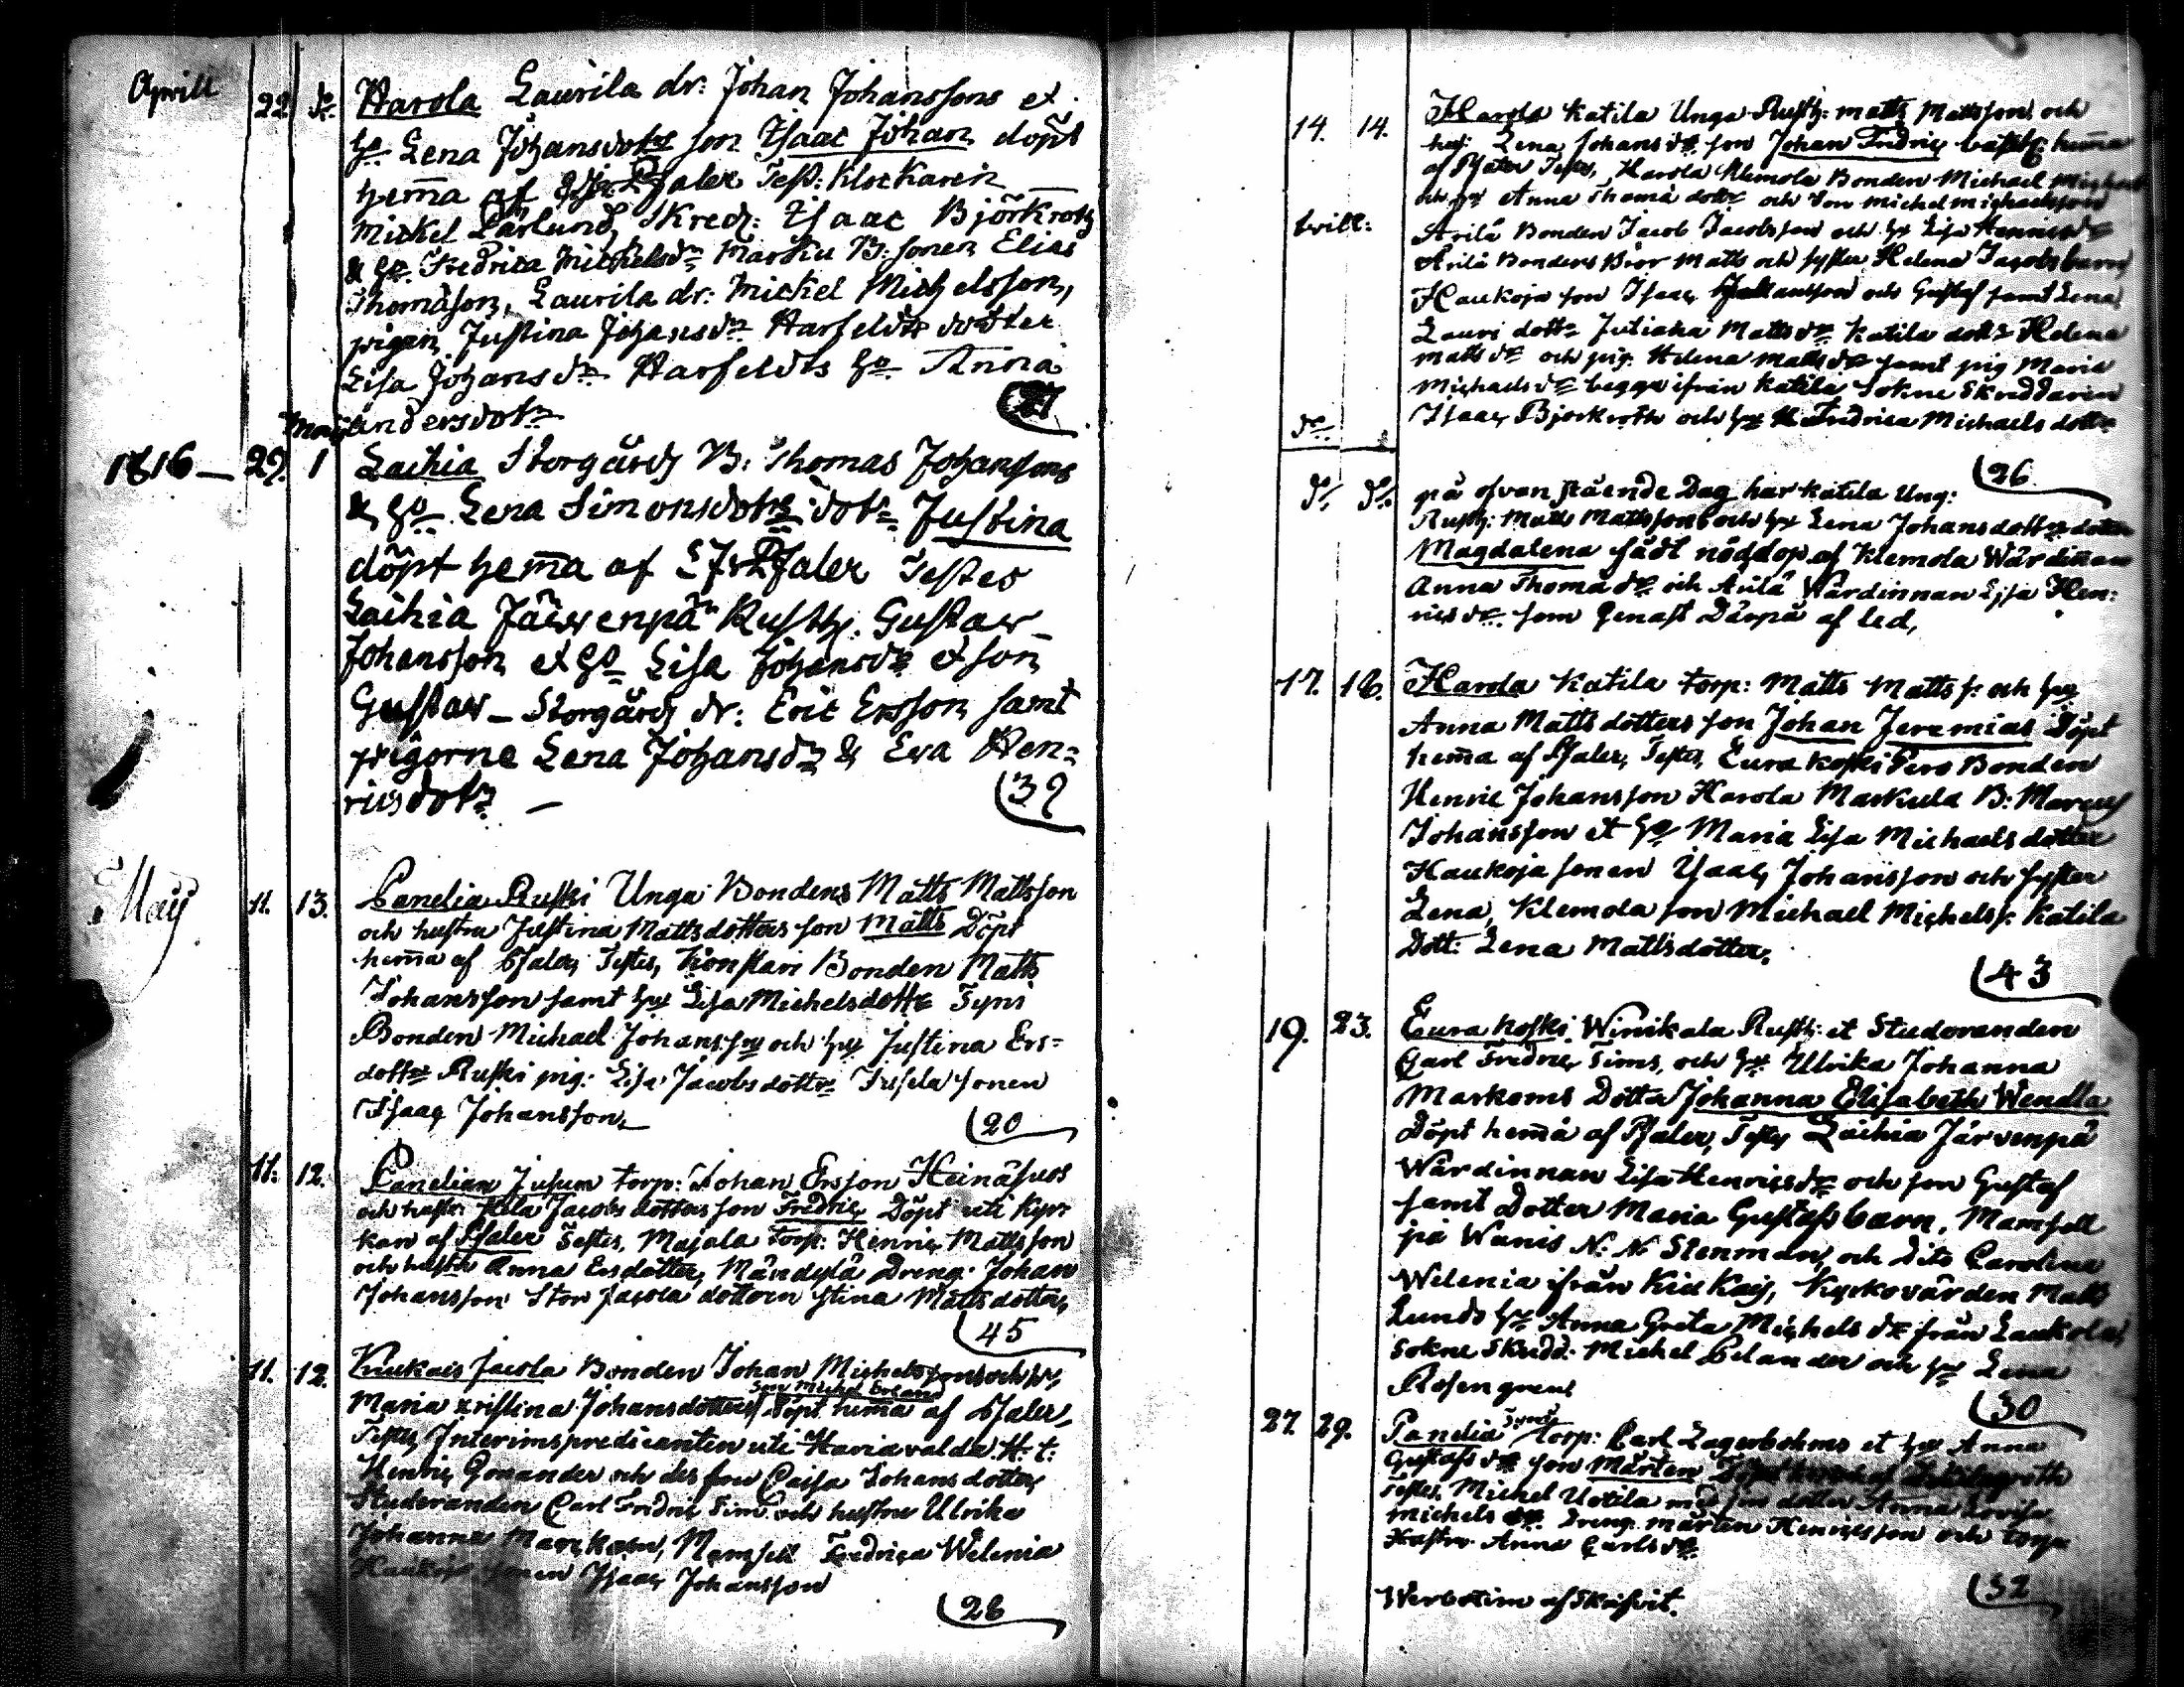 Aprill
22. do Harola Laurila dr: Johan Johanssons et
ho Lena Johansdotrs son Isaac Johan döpt
hem̄a af Psaler Test: Klockaren
Mickel Karlund, Skred: Isaac Björkroth
& ho Fredrica Michelsdr Marku B. Sonen Elias
Thomasson, Laurila dr: Mickel Michelsson,
pigan Justina Johansdr Harfeldts dotter
Lisa Johansdr Harfeldts ho Anna
Andersdotr (27
May
1816 — 29. 1 Laihia Storgårds B: Thomas Johanssons
& ho Lena Simonsdotrs dotr Justina
döpt hem̄a af Psaler Testes
Laihia Järvenpä Rusth. Gustav
Johansson et ho Lisa Johansdr et son
Gustav — Storgårds dr: Eric Ersson samt
pigorne Lena Johansdr & Eva Hen=
ricsdotr — (39
May
11. 13. Panelia Ruski Unga Bondens Matts Mattsson
och hustru Justina Mattsdotters son Matts Döpt
hem̄a af Psaler, Testes, Bonden Matts
Johansson samt hu Lisa Michelsdottr Tyni
Bonden Michael Johansson och hu Justina Ers=
dottr Ruski pig: Lisa Jacobsdottr sonen
Isaac Johansson (20
11. 12. Panelian Jusun torp: Johan Ersson Heinäsuos
och hustr Jacobs dotters son Fredric Döpt uti Kyr
kan af Psaler Testes, Majala Torp: Henric Mattsson
och hustr Anna Ersdotter, Mändylä Dreng: Johan
Johansson Stor Jacola dottren Stina Mattsdotter
(45
11. 12. Kiukais Jacola Bonden Johan Michelssons och hu
Maria xristina Johansdotters Döpt hem̄a af Psaler,
Son Michel Erland
Testes, Interimspredicanten uti Hariavalda H. t:
Henric Gonander och des fru Caisa Johans dotter,
Studeranden Carl Fredric Sim och hustru Ulrika
Johanna Marckom, Mamsell Fredrica Welenia
Haukoja sonen Isaac Johansson
(28
14. 14. Harola Katila Unga Rusth: Matts Mattsson och
hu: Lena Johansdr son Johan Fredric hem̄a
af Psaler Testes, Harola Klemola Bonden Michael
och hu Anna Thomä dottr och Son Michel Michaelsson
tvill: Arilä Bonden Jacob Jacobsson och hu Lisa Henricsdr
Arilä Bondens Bror Matts och syster Helena Jacobsbarn
Haukoja son Isaac Johansson och Gustaf samt Lena
Lauri dottr Juliana Mattsdr Katila dottr Helena
Mattsdr och pig. Helena Mattsdr samt pig Maria
Michaelsdr begge ifrån Katila Sokne Skreddaren
do Isaac Bjorkroth och hu Fredrica Michaels dottr
(26
do. do. på ofvan stående Dag har Katila Ung:
Rusth: Matts Mattssons och hu Lena Johansdottrs dotter
Magdalena fådt nöddop af Klemola Wärdinnan
Anna Thomädr och Arilä Wärdinnan Lisa Hen:
ricsdr som Genast Därpå af led,
17. 18. Harola Katila torp: Matts Matts s: och hu
Anna Mattsdotters son Johan Jeremias Döpt
hem̄a af Psaler, Testes, Eura koski Pero Bonden
Henric Johansson Harola Markula B: Marcus
Johansson et ho Maria Lisa Michaelsdotter
Haukoja sonen Isaac Johansson och syster
Lena, Klemola son Michael Michels s. Katila
Dott: Lena Mattsdotter.
(43
19. 23. Eura koski Winikala Rusth: et Studeranden
Carl Fredric Sims, och hu Ulrika Johanna
Markoms Dotter Johanna Elisabeth Wendla
Döpt hem̄a af Psaler, Testes Laihia Järvenpä
Wärdinnan Lisa Henricsdr och son Gustaf
samt Dotter Maria Gustafsbarn, Mamsell
på Wanis N: N: Stenman, och Dito Carolina
Welenia ifrån Kiukais, Kyrkovärden Matts
Lunds hu Anna Greta Michelsdr från Laukola,
Sokne Skredd: Michel Selander och hu Lena
Rosengrens
(30
27. 29. Panelia Tyni torp: Carl Lagerbohms et hu Anna
Gustafsdr son Mårten
Testes, Michel Uotila dotter Anna Lovisa
Michelsdr Dreng Mårten Henricsson och torp
Hustru Anna Carlsdr
(32
Werbatim afskrifvit.